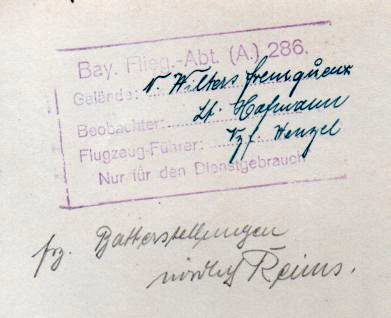 Bay. Flieg.-Abt. (A.) 286.
Gelände: v. Witters
Beobachter: Lt. Hafmann
Flugzeug-Führer: Vzf. Wenzel
Nur für den Dienstgebrauch
frz. Batteriestellungen
nördlich Reims.